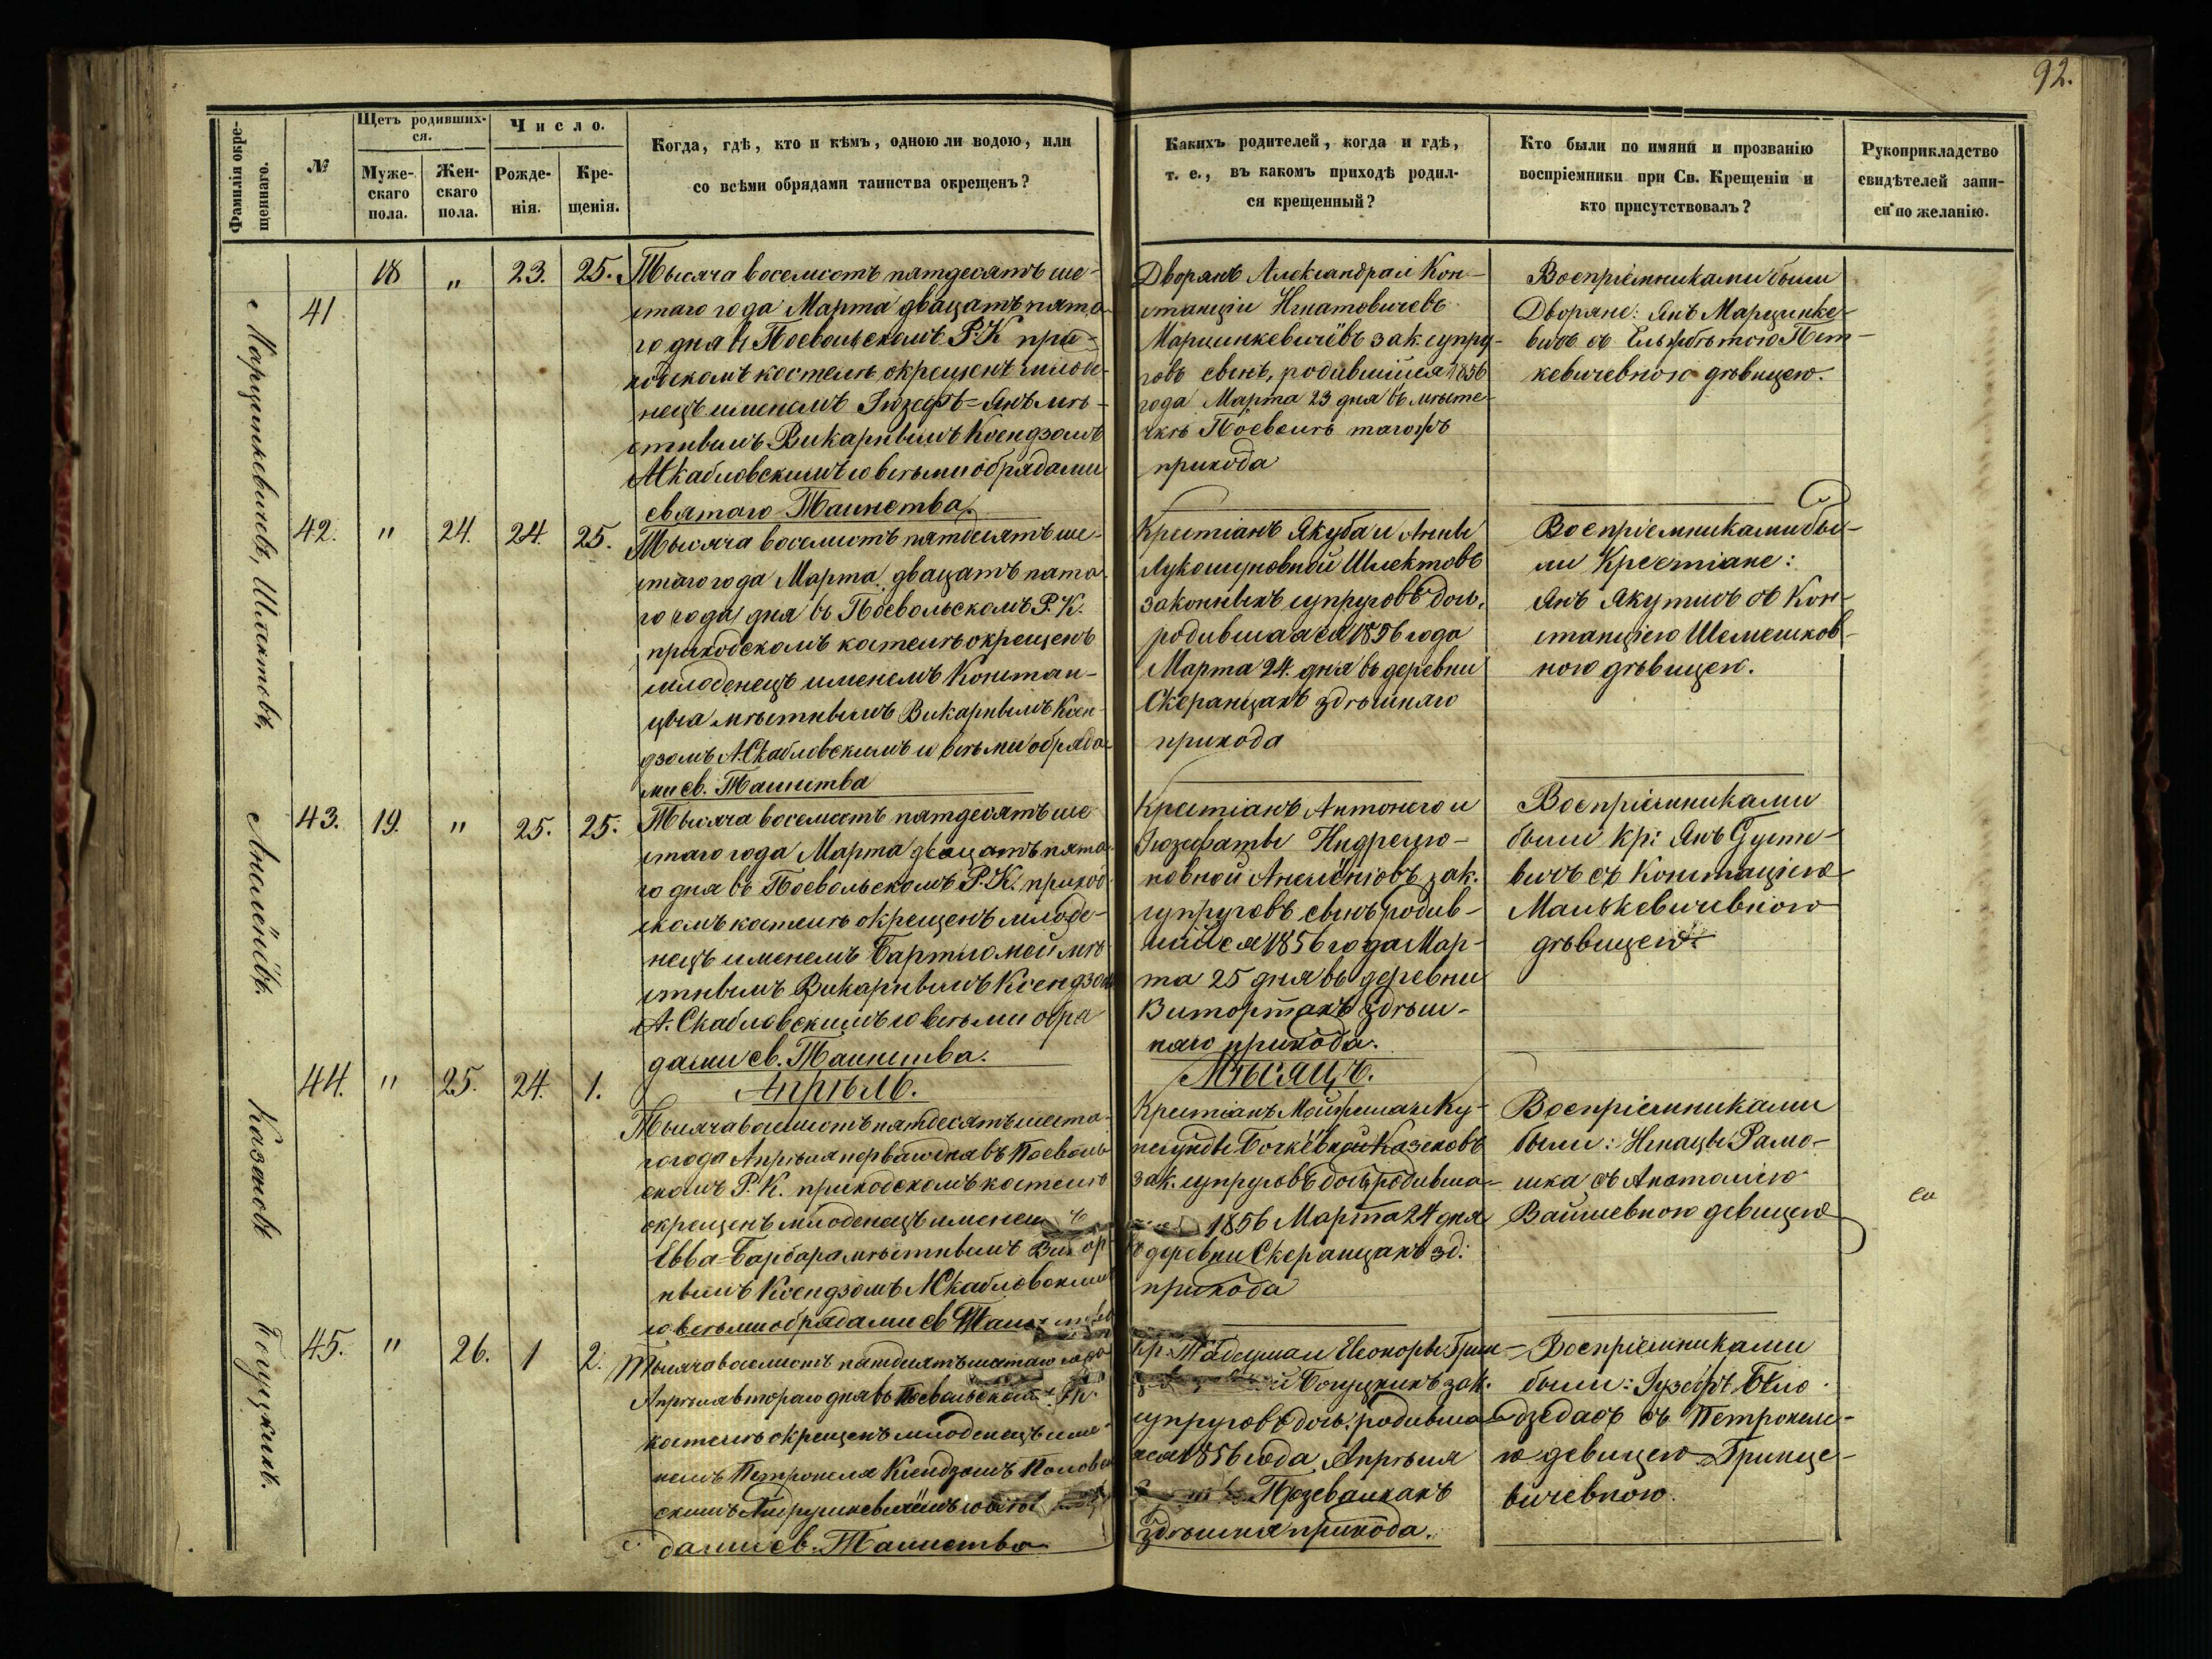 92.
Фамилія окре-
щеннаго.
№
Щетъ родивших-
ся.
Муже-
скаго
пола.
Жен-
скаго
пола.
Число.
Рожде-
нія.
Кре-
щенія.
Когда, гдѣ, кто и кѣмъ, одною ли водою, или
со всѣми обрядами таинства окрещенъ?
Какихъ родителей, когда и гдѣ,
т. е., въ какомъ приходѣ родил-
ся крещенный?
Кто были по имяни и прозванію
воспріемники при Св. Крещеніи и
кто присутствовалъ?
Рукоприкладство
свидѣтелей запи-
си по желанію.
Марцинкевичевъ,
41
18 " 23. 25.
Тысяча восемсотъ пятдесятъ ше-
стаго года Марта двацатъ пята
го дня въ Поевольскомъ Р. К при-
ходскомъ костелѣ окрещенъ младе-
нецъ именемъ Іюзефъ=Янъ мѣ-
стнымъ Викарнымъ Ксендзомъ
А Скабловскимъ со всѣми обрядами
святаго Таинства.
Дворянъ Александра и Кон-
станціи Игнатовичевъ
Марцинкевичёвъ зак. супру-
говъ сынъ, родившійся 1856
года Марта 23 дня въ мѣсте-
чкѣ Поевонѣ тагожъ
прихода
Воспріемниками были
Дворяне: Янъ Марцинке-
вичъ съ Ельжбѣтою Пет-
кевичевною дѣвицею.
Шлектовъ,
42. " 24. 24. 25.
Тысяча восемсотъ пятдесятъ ше-
стаго года Марта двацатъ пята
го года дня въ Поевольскомъ Р. К.
приходскомъ костелѣ окрещенъ
младенецъ именемъ Констан-
цыа мѣстнымъ Викарнымъ Ксен-
дзомъ А. Скабловскимъ со всѣми обряда-
ми св. Таинства
Крестіанъ Якуба и Анны
Лукошуновной Шлектовъ
законныхъ супруговъ дочь,
родившаяся 1856 года
Марта 24. дня въ деревни
Скеранцахъ здѣшняго
прихода
Воспріемниками бы-
ли Крестіане:
Янъ Якутисъ съ Кон-
станціею Шемешков-
ною дѣвицею.
43. 19. " 25. 25.
Тысяча восемсотъ пятдесятъ ше
стаго года Марта двацатъ пята
го дня въ Поевольскомъ Р. К. приход
скомъ костелѣ окрещенъ младе-
нецъ именемъ Бартломей мѣ
стнымъ Викарнымъ Ксендзом
А. Скабловскимъ со всѣми обра
дами св. Таинства.
Крестіанъ Антонего и
Іюзефаты
зак.
супруговъ сынъ родив-
шійся 1856 года Мар-
та 25 дня въ деревни
Витортахъ здѣш-
наго прихода.
Воспріемниками
были кр: Янъ
съ Констаціею
Мацкевичевною
дѣвицею.
Апрѣль.
Мѣсяцъ.
Казановъ
44. " 25. 24. 1.
Тысяча восемсотъ пятдесятъ шеста-
го года Апрѣля перваго дня въ Поеволь
скомъ Р. К. приходскомъ костелѣ
окрещенъ младенецъ именемъ
Евва=Барбара мѣстнымъ
нымъ Ксендзомъ А Скабловскимъ
со всѣми обрядами св
Крестіанъ
зак. супруговъ дочь родивша-
1856 Марта 24 дня
деревни Скеранцахъ зд:
прихода
Воспріемниками
были: Игнацы Рамо-
шка съ Анатолію
Вайшевною девицею
Богуцкихъ.
45. " 26. 1 2.
Тысяча восемсотъ пятдесятъ шестаго года
Апрѣля втораго дня въ Поевольскомъ
костелѣ окрещенъ младенецъ име-
немъ Петронеля Ксендзомъ
дами св. Таинства
Кр. Тадеуша и Елеоноры
и Богуцкихъ зак.
супруговъ дочь родивша-
яся 1856 года Апрѣля
здѣшня прихода.
Воспріемниками
были:
съ Петронели-
ю девицею Гринце-
вичевною.